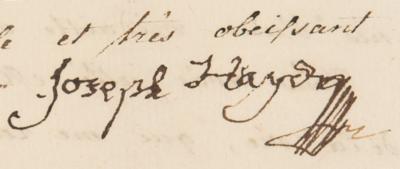 et très obeiſsant
Joseph Haydn